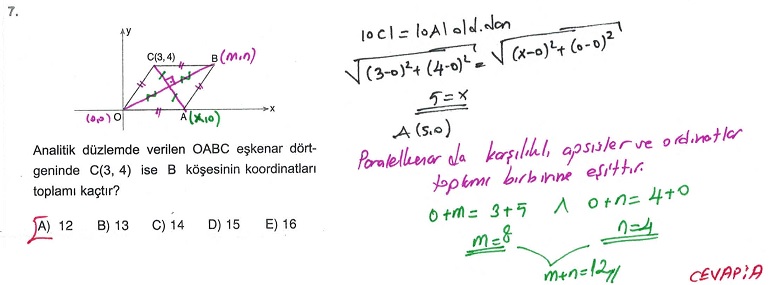 7.
y
C(3, 4)
B(m,n)
(0,0) O
A(x,0)
x
Analitik düzlemde verilen OABC eşkenar dört-
geninde C(3, 4) ise B köşesinin koordinatları
toplamı kaçtır?
A) 12 B) 13 C) 14 D) 15 E) 16
|OC| = |OA| old.dan
√(3-0)²+(4-0)² = √(x-0)²+(0-0)²
5=x
A(5,0)
Paralelkenar da karşılıklı apsisler ve ordinatlar
toplamı birbirine eşittir.
0+m= 3+5 ∧ 0+n= 4+0
m=8 n=4
m+n=12//
CEVAP:A